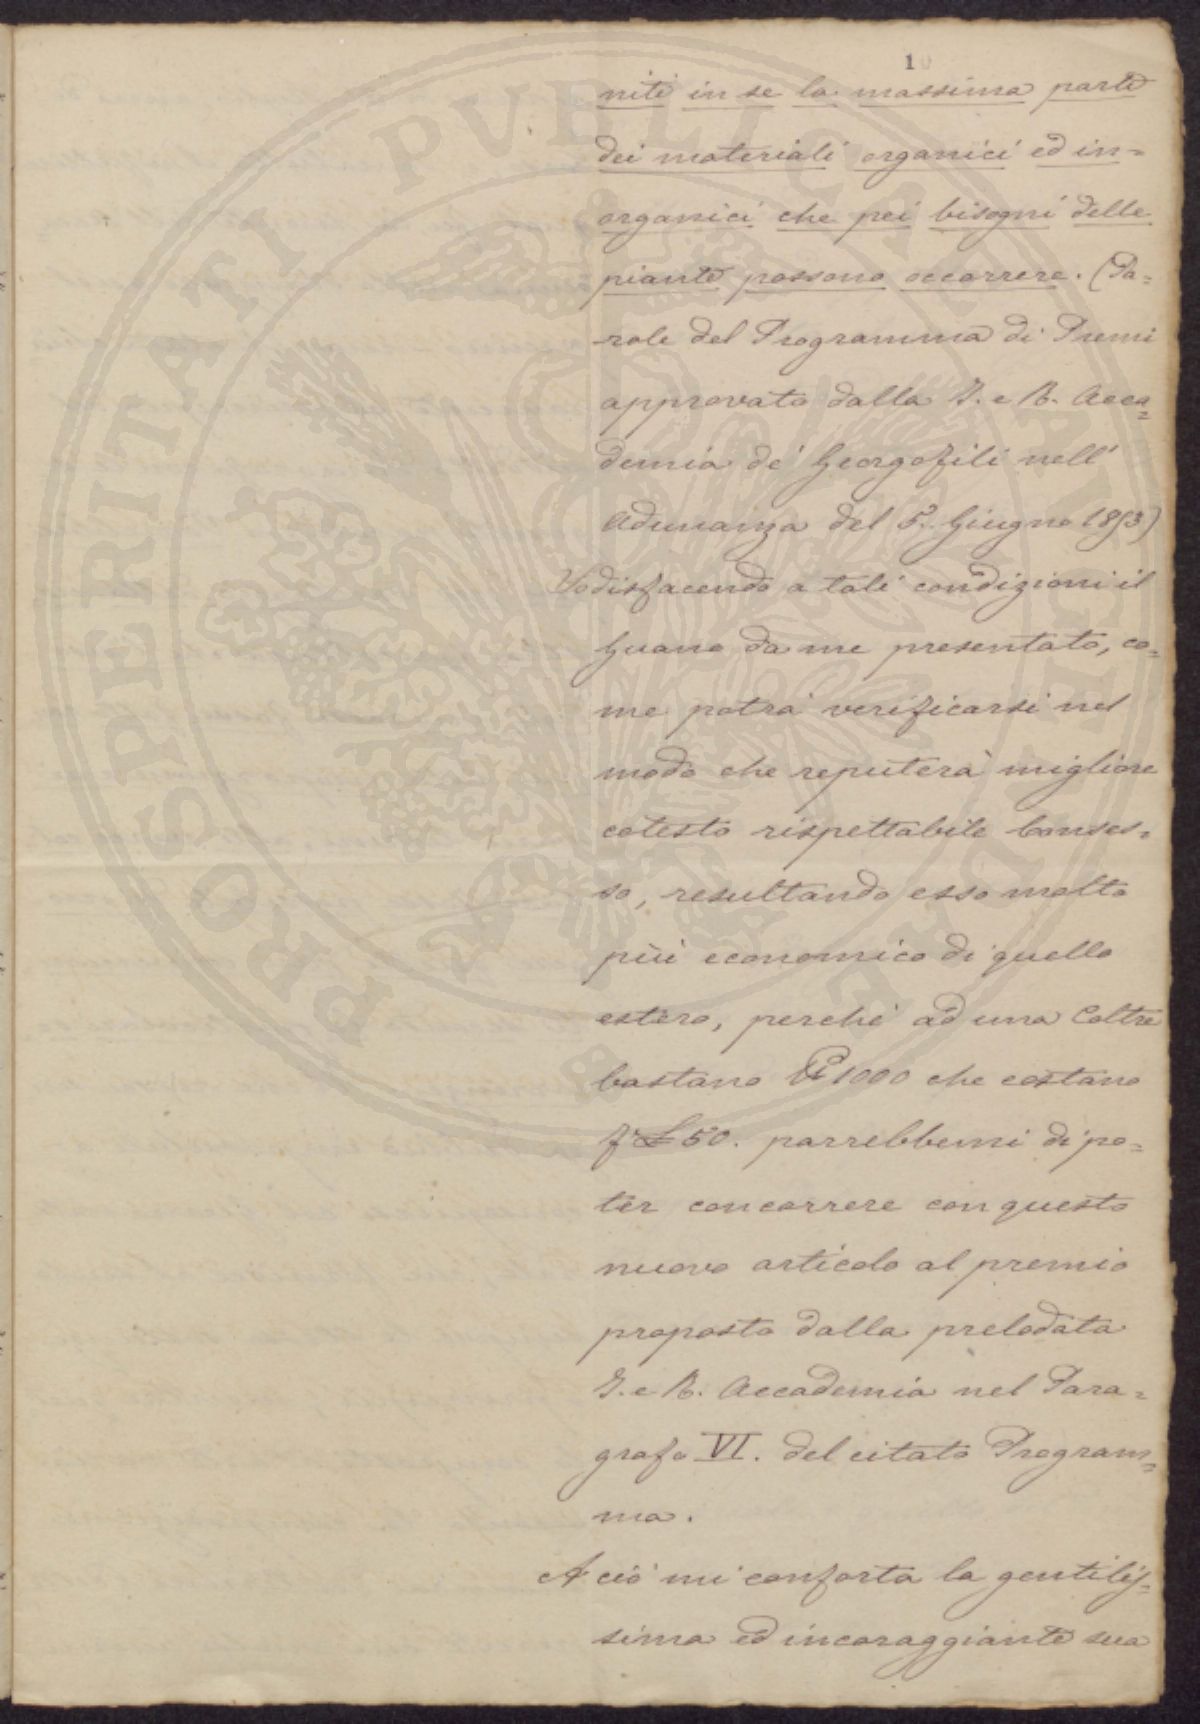 10
nite in se la massima parte
dei materiali organici ed in=
organici che pei bisogni delle
piante possono occorrere. (Pa=
role del Programma di Premi
approvato dalla I. e R. Acca=
demia de' Georgofili nell'
Adunanza del 5. Giugno 1853)
Sodisfacendo a tali condizioni il
Guano da me presentato, co=
me potrà verificarsi nel
modo che reputerà migliore
cotesto rispettabile Conses=
so, resultando esso molto
più economico di quello
estero, perché ad una Coltre
bastano 1000 che costano
£ 50. parrebbemi di po=
ter concorrere con questo
nuovo articolo al premio
proposto dalla prelodata
I. e R. Accademia nel Para=
grafo VI. del citato Program=
ma.
A ciò mi conforta la gentilis=
sima ed incoraggiante sua
PROSPERITATI PUBLICAE AUGENDAE